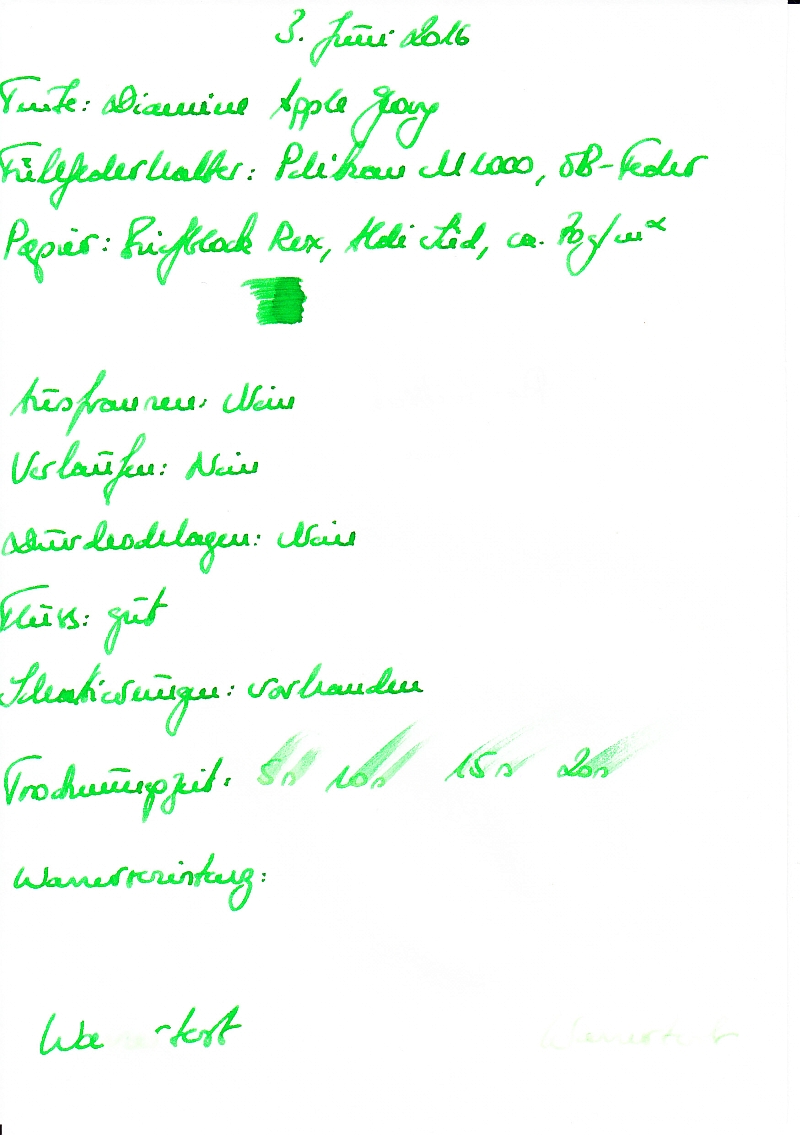 3. Juni 2016
Tinte: Diamine Apple Glory
Füllfederhalter: Pelikan M1000, OB-Feder
Papier: Briefblock Rex, Aldi Süd, ca. 70 g/m²
Ausfransen: Nein
Verlaufen: Nein
Durchschlagen: Nein
Fluss: gut
Schattierungen: vorhanden
Trocknungszeit: 5s 10s 15s 20s
Wasserresistenz:
Wa -test